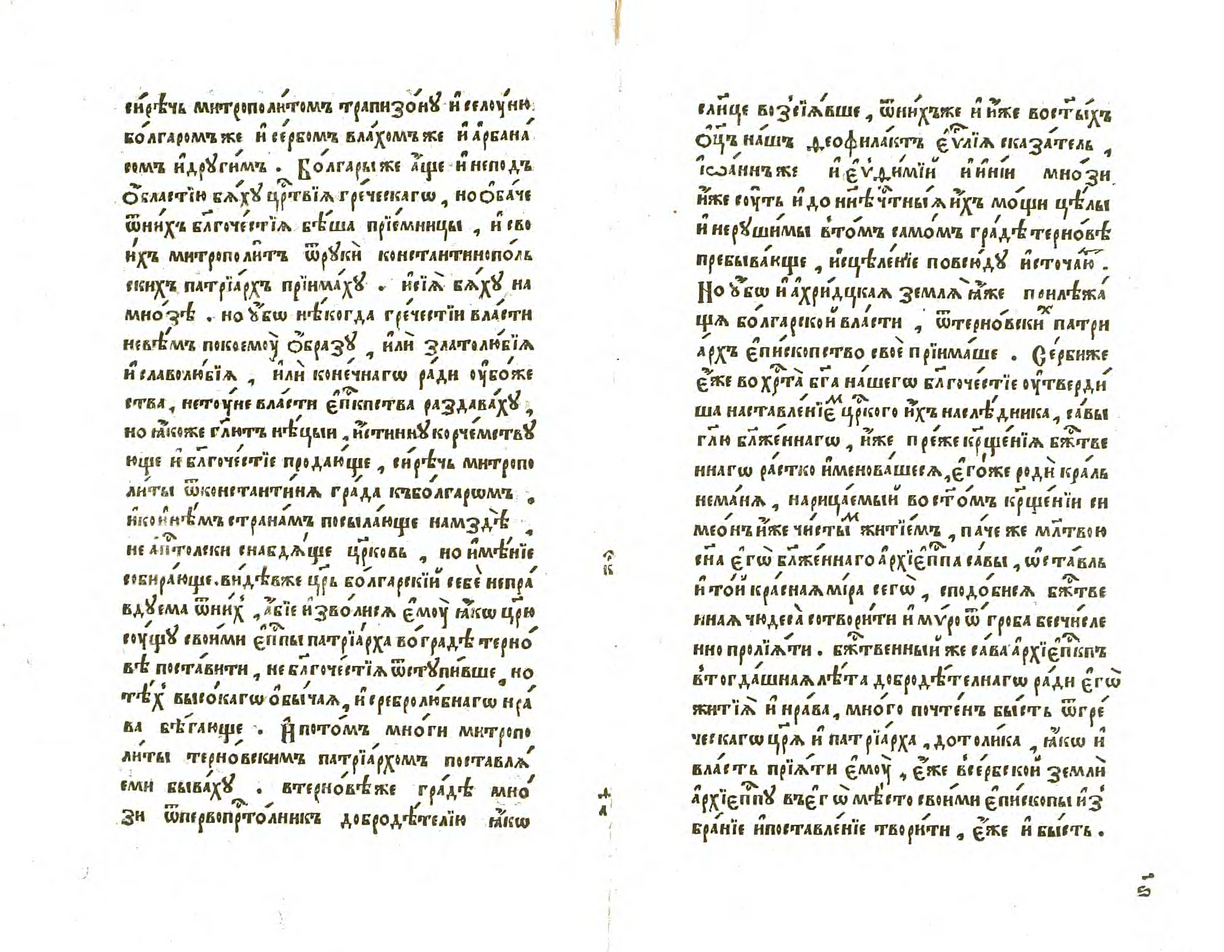 си́рѣчь митрополи́томъ трапизо́нꙋ и҆ селоу́ню
бо́лгаромъже и҆ се́рбомъ вла́хомъже и҆ а҆рбана́
сомъ и҆дрꙋги́мъ. Бо́лгарыже а҆́ще и҆неподъ
ѻ҆́бластїю бѧ́хꙋ црⷭ҇твїѧ гре́ческагѡ, но ѻ҆ба́че
ѿни́хъ блгоче́стїѧ бѣ́ша прїе́мницы, и҆ сво
и҆́хъ митрополи́тъ ѿрꙋкѝ константинопо́ль
скихъ патрїа́рхъ прїима́хꙋ. и҆сїѧ̀ бѧ́хꙋ на
мно́зѣ. но ᲂу҆́бѡ нѣ́когда гре́честїи вла́сти
невѣ́мъ покоемоу̀ ѻ҆́бразꙋ, и҆лѝ златолю́бїѧ
и҆ славолю́бїѧ, и҆лѝ коне́чнагѡ ра́ди ᲂу҆бо́же
ства, нето́чне вла́сти є҆пⷭ҇кпства раздава́хꙋ,
но ꙗ҆́коже гл҃ютъ нѣ́цыи, и҆́стиннꙋ корче́мствꙋ
юще и҆ блгоче́стїе продаю́ще, си́рѣчь митропо
ли́ты ѿконстанти́нѧ гра́да къбо́лгарѡмъ.
и҆кои҆нѣ́мъ страна́мъ посыла́юще намздѣ̀,
не а҆пⷭ҇толски снабдѧ́ще цр҃ковь, но и҆мѣ́нїе
собира́юще. ви́дѣвже цр҃ь бо́лгарскїй себѐ непра́
вдꙋема ѿни́х, а҆́бїе и҆зво́лисѧ є҆моу̀ ꙗ҆́кѡ цр҃ю
соу́щꙋ свои́ми є҆пⷭ҇пы патрїа́рха во гра́дѣ терно́
вѣ поста́вити, не блгоче́стїѧ ѿстꙋпи́вше, но
тѣ́х высо́кагѡ ѻ҆бы́чаѧ, и҆ сребролю́бнагѡ нра́
ва бѣ́гающе. И҆ пото́мъ мно́ги митропо
ли́ты терно́вскимъ патрїа́рхомъ поставлѧ́
еми быва́хꙋ. втерно́вѣже гра́дѣ мно́
зи ѿпервопрⷭ҇то́лникъ добродѣ́телїю ꙗ҆́кѡ
сл҃нце возсїѧ́вше, ѿни́хъже и҆ и҆́же востⷭ҇ы́хъ
ѻ҆ц҃ъ на́шъ ѳеофила́ктъ є҆ѵⷢ҇лїѧ сказа́тель,
і҆ѡа́ннъже и҆ є҆ѵѳи́мїй и҆ и҆ні́и мно́зи
и҆́же соу́ть и҆ до нн҃ѣ чтⷭ҇ны́ѧ и҆́хъ мо́щи цѣ́лы
и҆ нерꙋши́мы вто́мъ само́мъ гра́дѣ терно́вѣ
пребыва́юще, и҆сцѣле́нїе повсю́дꙋ и҆сточа́ю.
Но ᲂу҆́бѡ и҆ а҆хри́дцкаѧ землѧ̀ ꙗ҆́же прилѣжа́
щаѧ бо́лгарской вла́сти, ѿтерно́вскихъ патри
а́рхъ є҆пи́скопство своѐ прїима́ше. Се́рбиже
є҆́же во хрⷭ҇та̀ бг҃а на́шегѡ блгоче́стїе ᲂу҆тверди́
ша наставле́нїемъ цр҃кого и҆́хъ наслѣ́дника, са́вы
гл҃ю бл҃же́ннагѡ, и҆́же пре́же крⷳ҇ще́нїѧ бжⷭ҇тве
ннагѡ ра́стко и҆менова́шесѧ, є҆го́же родѝ кра́ль
нема́нѧ, нарица́емый во стⷭ҇о́мъ крⷳ҇ще́нїи си
мео́нъ и҆́же чи́стымъ житїе́мъ, па́че же мл҃твою
сн҃а є҆гѡ̀ бл҃же́ннаго а҆рхїе҆пⷭ҇па са́вы, ѡ҆ста́вль
и҆ то́й кра́снаѧ ми́ра сегѡ̀, спо́до́бисѧ бжⷭ҇тве
ннаѧ чюдеса̀ сотвори́ти и҆ мѵ́ро ѿ гро́ба бесчи́сле
нно пролїѧ́ти. бжⷭ҇твенный же са́ва а҆рхїе҆пⷭ҇кпъ
втогда́шнаѧ лѣ́та добродѣ́телнагѡ ра́ди є҆гѡ̀
житїѧ̀ и҆ нра́ва, мно́го почте́нъ бы́сть ѿгре́
ческагѡ цр҃ѧ̀ и҆ патрїа́рха, дото́лика, ꙗ҆́кѡ и҆
вла́сть прїѧ́ти є҆моу̀, є҆́же всербской землѝ
а҆рхїе҆пⷭ҇пꙋ въє҆гѡ̀ мѣ́сто свои́ми є҆пи́скопы и҆з
бра́нїе и҆поставле́нїе твори́ти, є҆́же и҆ бы́сть.